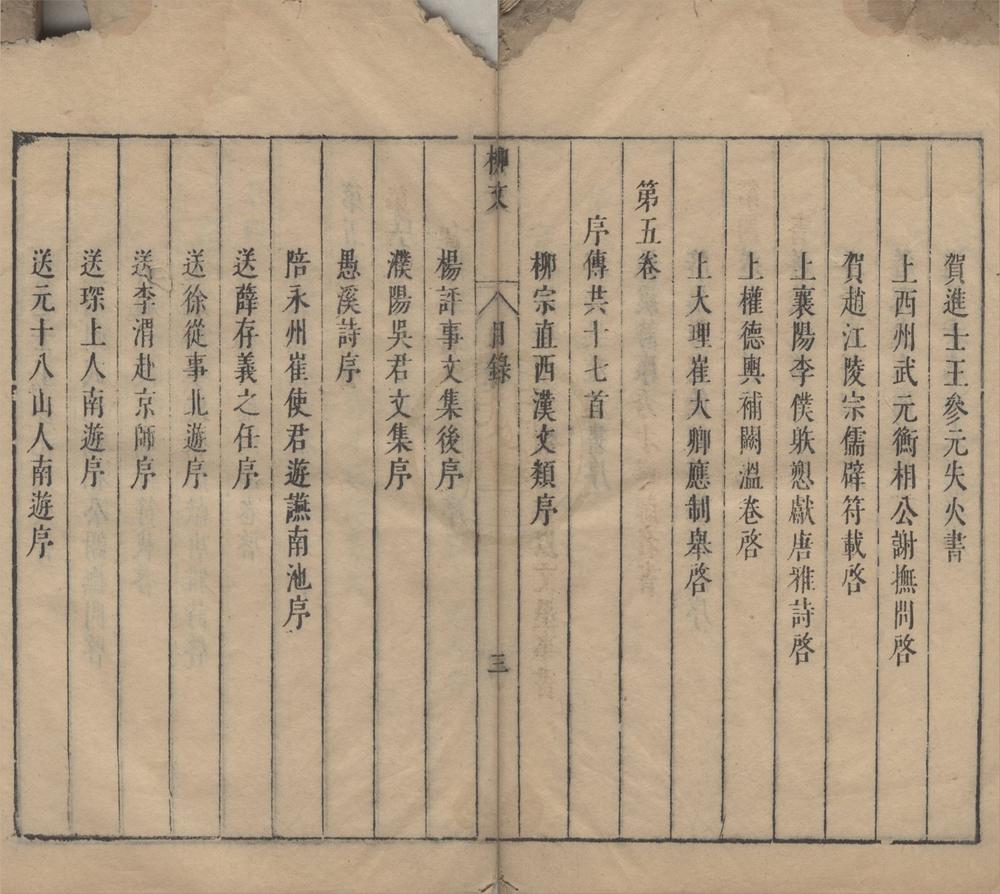 賀進士王參元失火書
上西州武元衡相公謝撫問啓
賀趙江陵宗儒辟符載啓
上襄陽李僕射愬獻唐雅詩啓
上權德輿補闕溫卷啓
上大理崔大卿應制舉啓
第五卷
序傳共十七首
柳宗直西漢文類序
柳文
目錄
三
楊評事文集後序
濮陽吳君文集序
愚溪詩序
陪永州崔使君遊讌南池序
送薛存義之任序
送徐從事北遊序
送李渭赴京師序
送琛上人南遊序
送元十八山人南遊序